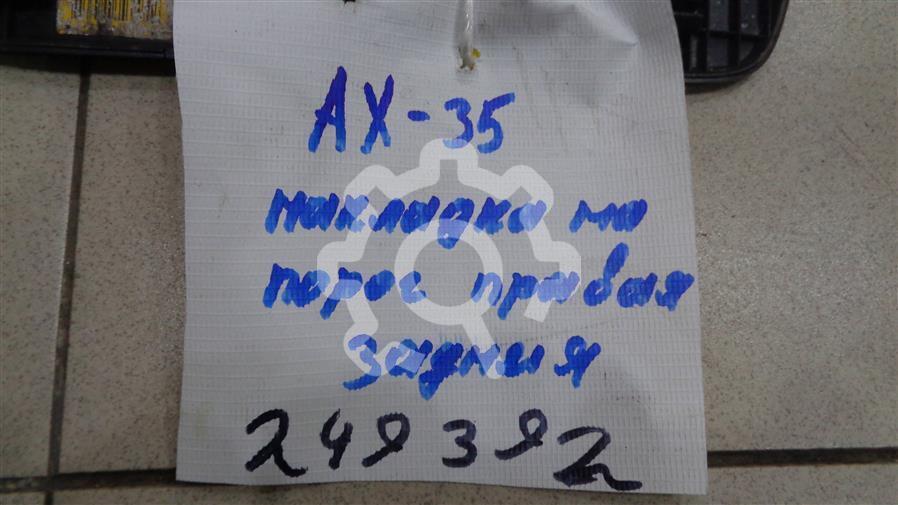 АХ-35
накладка на
порог правая
задния
249392